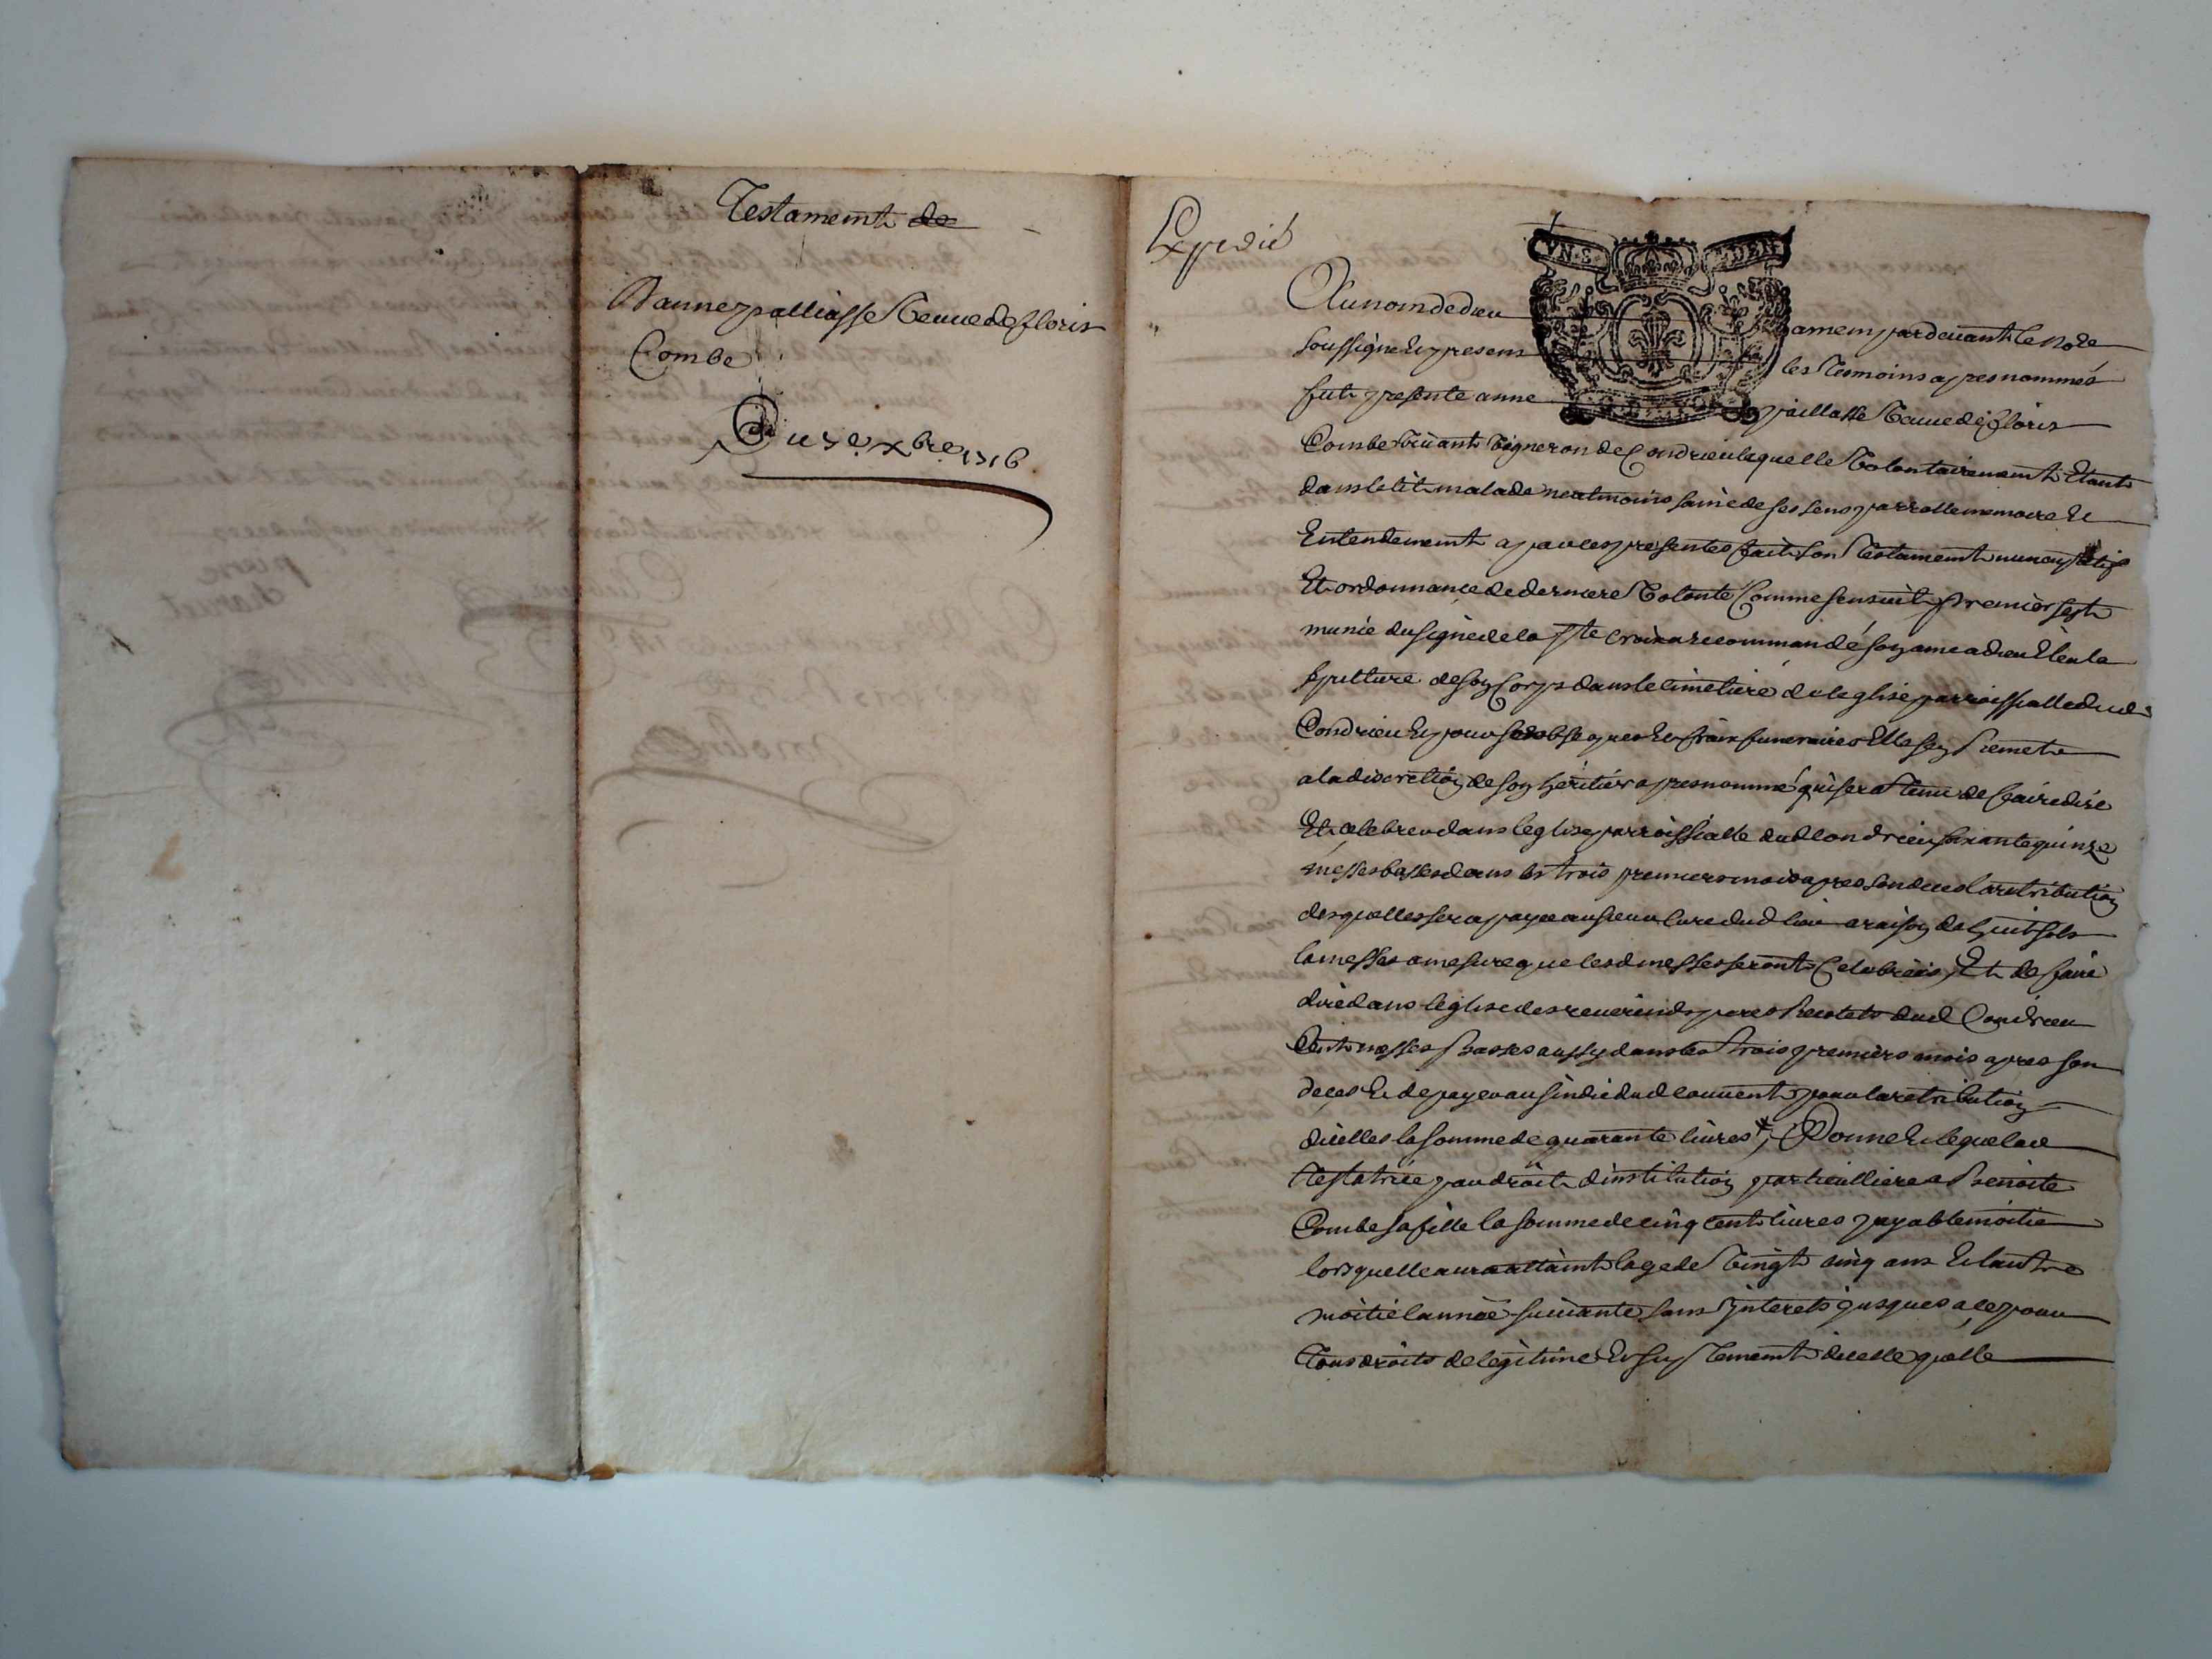 Testament de
D'anne palliasse Veuve de floris
Combe
Du 7e xbre 1716
Expedié
Au nom de dieu amen pardevant le nore
soussigné et presens les Tesmoins apres nommés
fut presente anne paillasse Veuve de floris
Combe Vivant Vigneron de Condrieu laquelle Volontairement Etant
dans le lit malade neatmoins saine de ses sens parolle memoire Et
Entendement a par ces presentes fait son Testament nuncupatif
Et ordonnance de derniere Volonté Comme sensuit premier sest
munie du signe de la Ste croix a recommandé son ame a dieu Eleu la
sepulture de son Corps dans le cimetiere de leglise parroissialle dud
Condrieu Et pour ses obseques Et fraix funeraires Elle sen remet
a la discretion de son heritier apres nommé qui sera Tenu de faire dire
Et celebrer dans leglise parroissialle dud Condrieu soixante quinze
messes basses dans les trois premiers mois apres son deces la retribution
desquelles sera payée au sieur Curé dud lieu a raison de huit sols
la messes a mesure que lesd messes seront Celebrées, Et de faire
dire dans leglise des reverends peres Recolets dud Condrieu
Cent messes Basses aussy dans les Trois premiers mois apres son
deces Et de payer au sindic dud couvent pour la retribution
dicelles la somme de quarante livres, Donne Et legue lad
Testatrice par droit dinstitution particulliere a Benoite
Combe sa fille la somme de cinq cent livres payable moitié
lorsquelle aura attaint lage de Vingt cinq ans Et lautre
moitié lannée suivante sans Interets jusques a ce pour
Tous droits de legitime Et suplement dicelle quelle
pierre